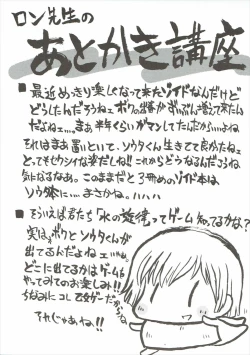 ロン先生の
あとがき講座
■最近めっきり楽しくなって来たゾイドなんだけど
どうしたんだろうねェ。ボクの出番がずいぶん増えて来たん
だよねェ…。まあ半年くらいガマンしてたんだから…いいよね
それはまあ置いといて、ソウタくん生きてて良かったねェ。
とってもセクシィな姿だしね!!これからどうなるんだろうね
気になるなあ。このままだと3冊めのゾイド本は
ソウタ本に…まさかね。ハハハ
■そういえば君たち「水の旋律」ってゲーム知ってるかな?
実はボクとソウタくんが
出てるんだよねェ…。
どこに出てるかはゲームを
やってみてのお楽しみ!!
ちなみにコレ女ゲーだからね
それじゃあね!!